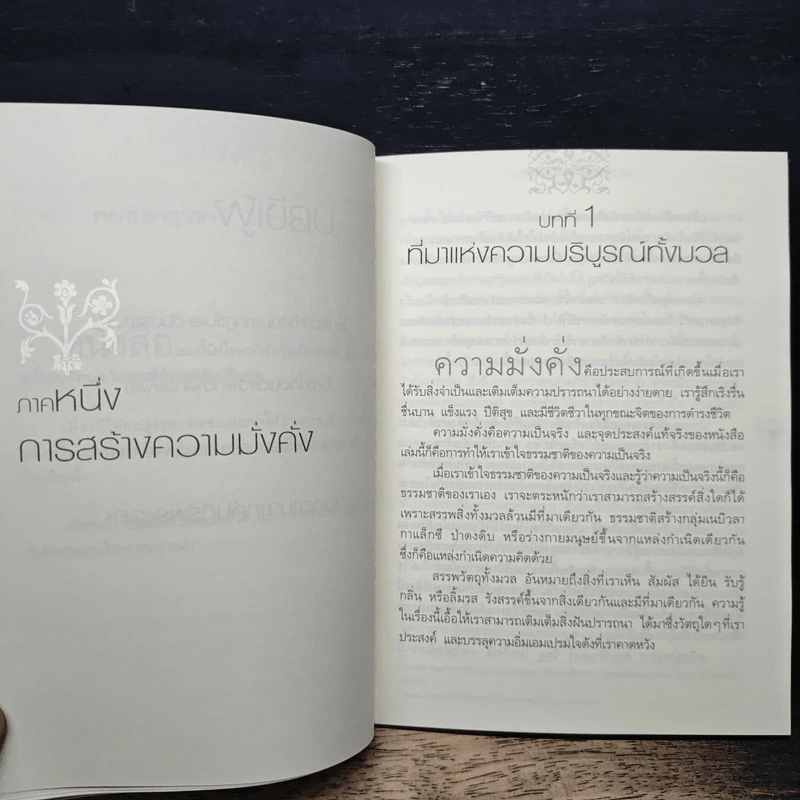 ภาคหนึ่ง
การสร้างความมั่งคั่ง
บทที่ 1
ที่มาแห่งความบริบูรณ์ทั้งมวล
ความมั่งคั่ง คือประสบการณ์ที่เกิดขึ้นเมื่อเรา
ได้รับสิ่งจำเป็นและเติมเต็มความปรารถนาได้อย่างง่ายดาย เรารู้สึกเริงรื่น
ชื่นบาน แข็งแรง ปีติสุข และมีชีวิตชีวาในทุกขณะจิตของการดำรงชีวิต
ความมั่งคั่งคือความเป็นจริง และจุดประสงค์แท้จริงของหนังสือ
เล่มนี้ก็คือการทำให้เราเข้าใจธรรมชาติของความเป็นจริง
เมื่อเราเข้าใจธรรมชาติของความเป็นจริงและรู้ว่าความเป็นจริงนี้ก็คือ
ธรรมชาติของเราเอง เราจะตระหนักว่าเราสามารถสร้างสรรค์สิ่งใดก็ได้
เพราะสรรพสิ่งทั้งมวลล้วนมีที่มาเดียวกัน ธรรมชาติสร้างกลุ่มเนบิวลา
กาแล็กซี ป่าดงดิบ หรือร่างกายมนุษย์ขึ้นจากแหล่งกำเนิดเดียวกัน
ซึ่งก็คือแหล่งกำเนิดความคิดด้วย
สรรพวัตถุทั้งมวล อันหมายถึงสิ่งที่เราเห็น สัมผัส ได้ยิน รับรู้
กลิ่น หรือลิ้มรส รังสรรค์ขึ้นจากสิ่งเดียวกันและมีที่มาเดียวกัน ความรู้
ในเรื่องนี้เอื้อให้เราสามารถเติมเต็มสิ่งฝันปรารถนา ได้มาซึ่งวัตถุใดๆที่เรา
ประสงค์ และบรรลุความอิ่มเอมเปรมใจดังที่เราคาดหวัง